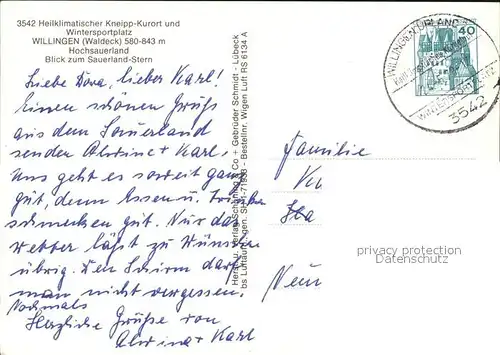 3542 Heilklimatischer Kneipp-Kurort und
Wintersportplatz
WILLINGEN (Waldeck) 580-843 m
Hochsauerland
Blick zum Sauerland-Stern
Liebe Dora, lieber Karl!
Einen schönen Gruß
aus dem Sauerland
senden Alwine + Karl.
Uns geht es soweit ganz
gut, denn Essen u. Trinken
schmecken gut. Nur das
Wetter läßt zu Wünschen
übrig. Den Schirm darf
man nicht vergessen.
Nochmals
Herzliche Grüße von
Alwine + Karl
Herst. u. Verlag Schöning & Co · Gebrüder Schmidt · Lübeck
bs Luftaufn. SHA-71938 - Bestellnr. Wigen Luft RS 6134 A
40
WILLINGEN, UPLAND
WINTERSPORTPLATZ
3542
Familie
Neun
privacy protection
Datenschutz